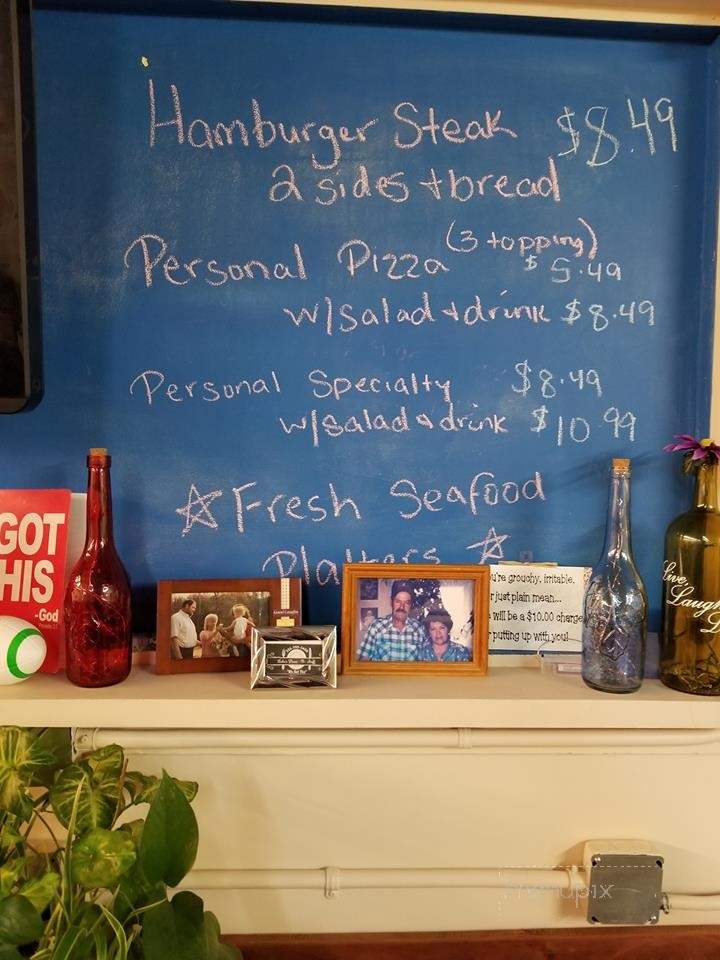 Hamburger Steak $8.49
2 sides + bread
Personal Pizza (3 topping) $5.49
w/salad + drink $8.49
Personal Specialty $8.49
w/salad & drink $10.99
☆ Fresh Seafood
Platters ☆
GOT
HIS
-God
're grouchy, irritable,
just plain mean...
will be a $10.00 charge
putting up with you!
Live,
Laugh
L